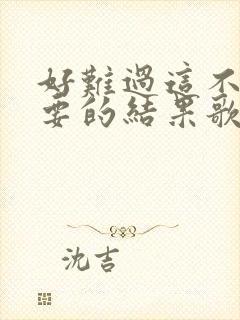 好難過這不
要的結果歌
沈吉